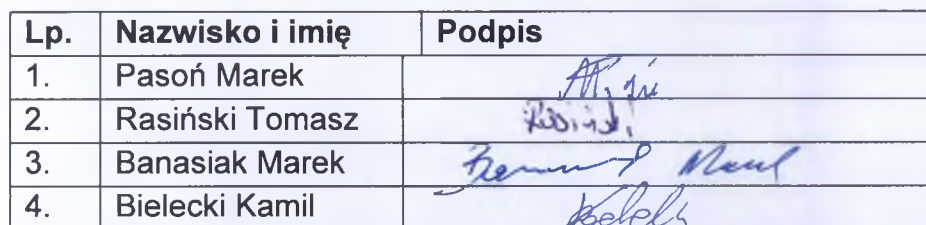 Lp. Nazwisko i imię Podpis
1. Pasoń Marek
2. Rasiński Tomasz
3. Banasiak Marek
4. Bielecki Kamil